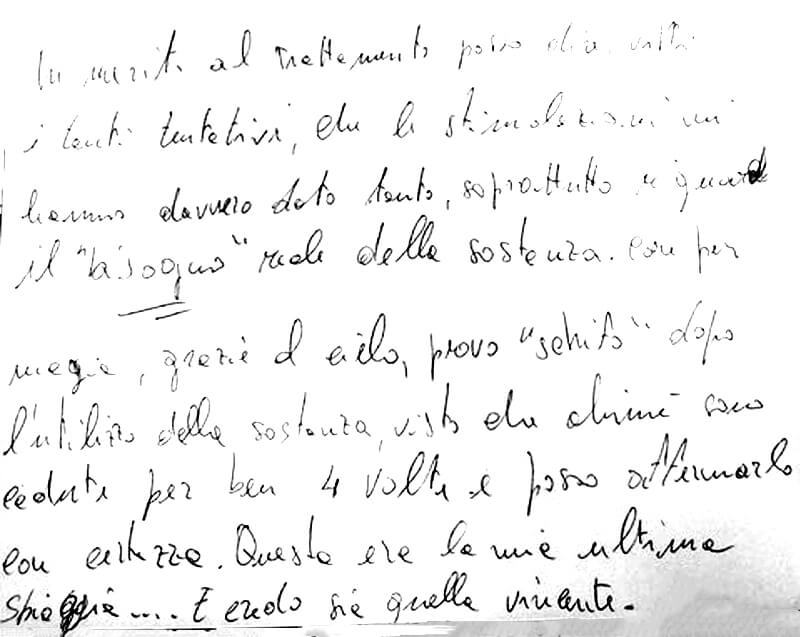 In merito al trattamento posso dire, visti
i tanti tentativi, che le stimolazioni mi
hanno davvero dato tanto, soprattutto riguardo
il "bisogno" reale della sostanza. Come per
magia, grazie al cielo, provo "schifo" dopo
l'utilizzo della sostanza, visto che ahimè sono
caduta per ben 4 volte e posso affermarlo
con certezza. Questa era la mia ultima
spiaggia.... E credo sia quella vincente.